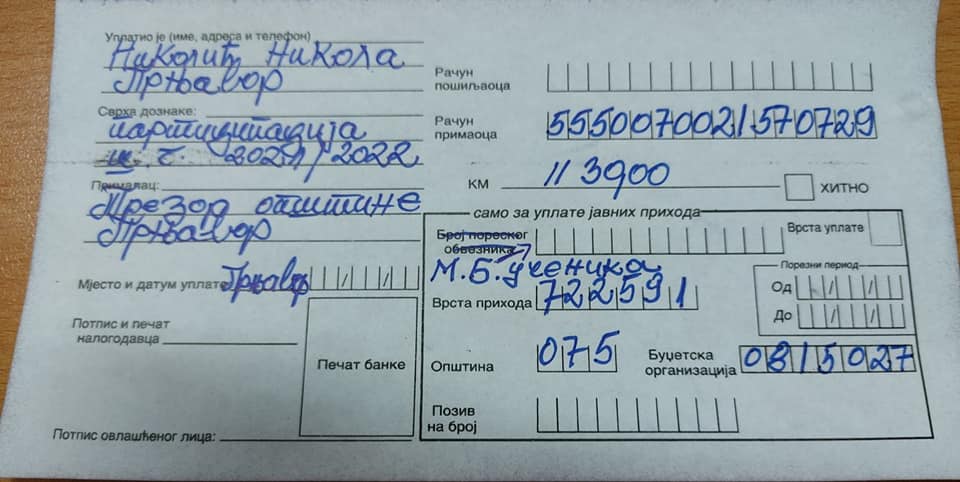 Уплатио је (име, адреса и телефон)
Николић Никола
Прњавор
Сврха дознаке:
партиципација
ш. г. 2021/2022
Прималац:
Трезор општине
Прњавор
Мјесто и датум уплате Прњавор
Потпис и печат
налогодавца
Печат банке
Потпис овлашћеног лица:
Рачун
пошиљаоца
Рачун
примаоца 5550070021570729
КМ 113900
ХИТНО
само за уплате јавних прихода
Број пореског
обвезника
М.Б. ученика
Врста уплате
Порезни период
Од
До
Врста прихода 722591
Општина 075
Буџетска
организација 0815027
Позив
на број